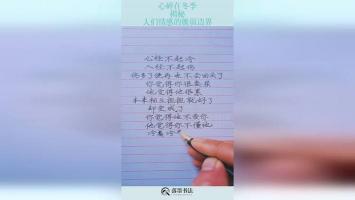 心碎在冬季
揭秘
人们情感的脆弱边界
心经不起冷
人经不起伤
伤多了便再也不会回头了
你觉得你很委屈
他觉得他很累
本来相互抱抱就好了
却变成了
你觉得他不爱你
他觉得你不懂他
冷着冷
落墨书法